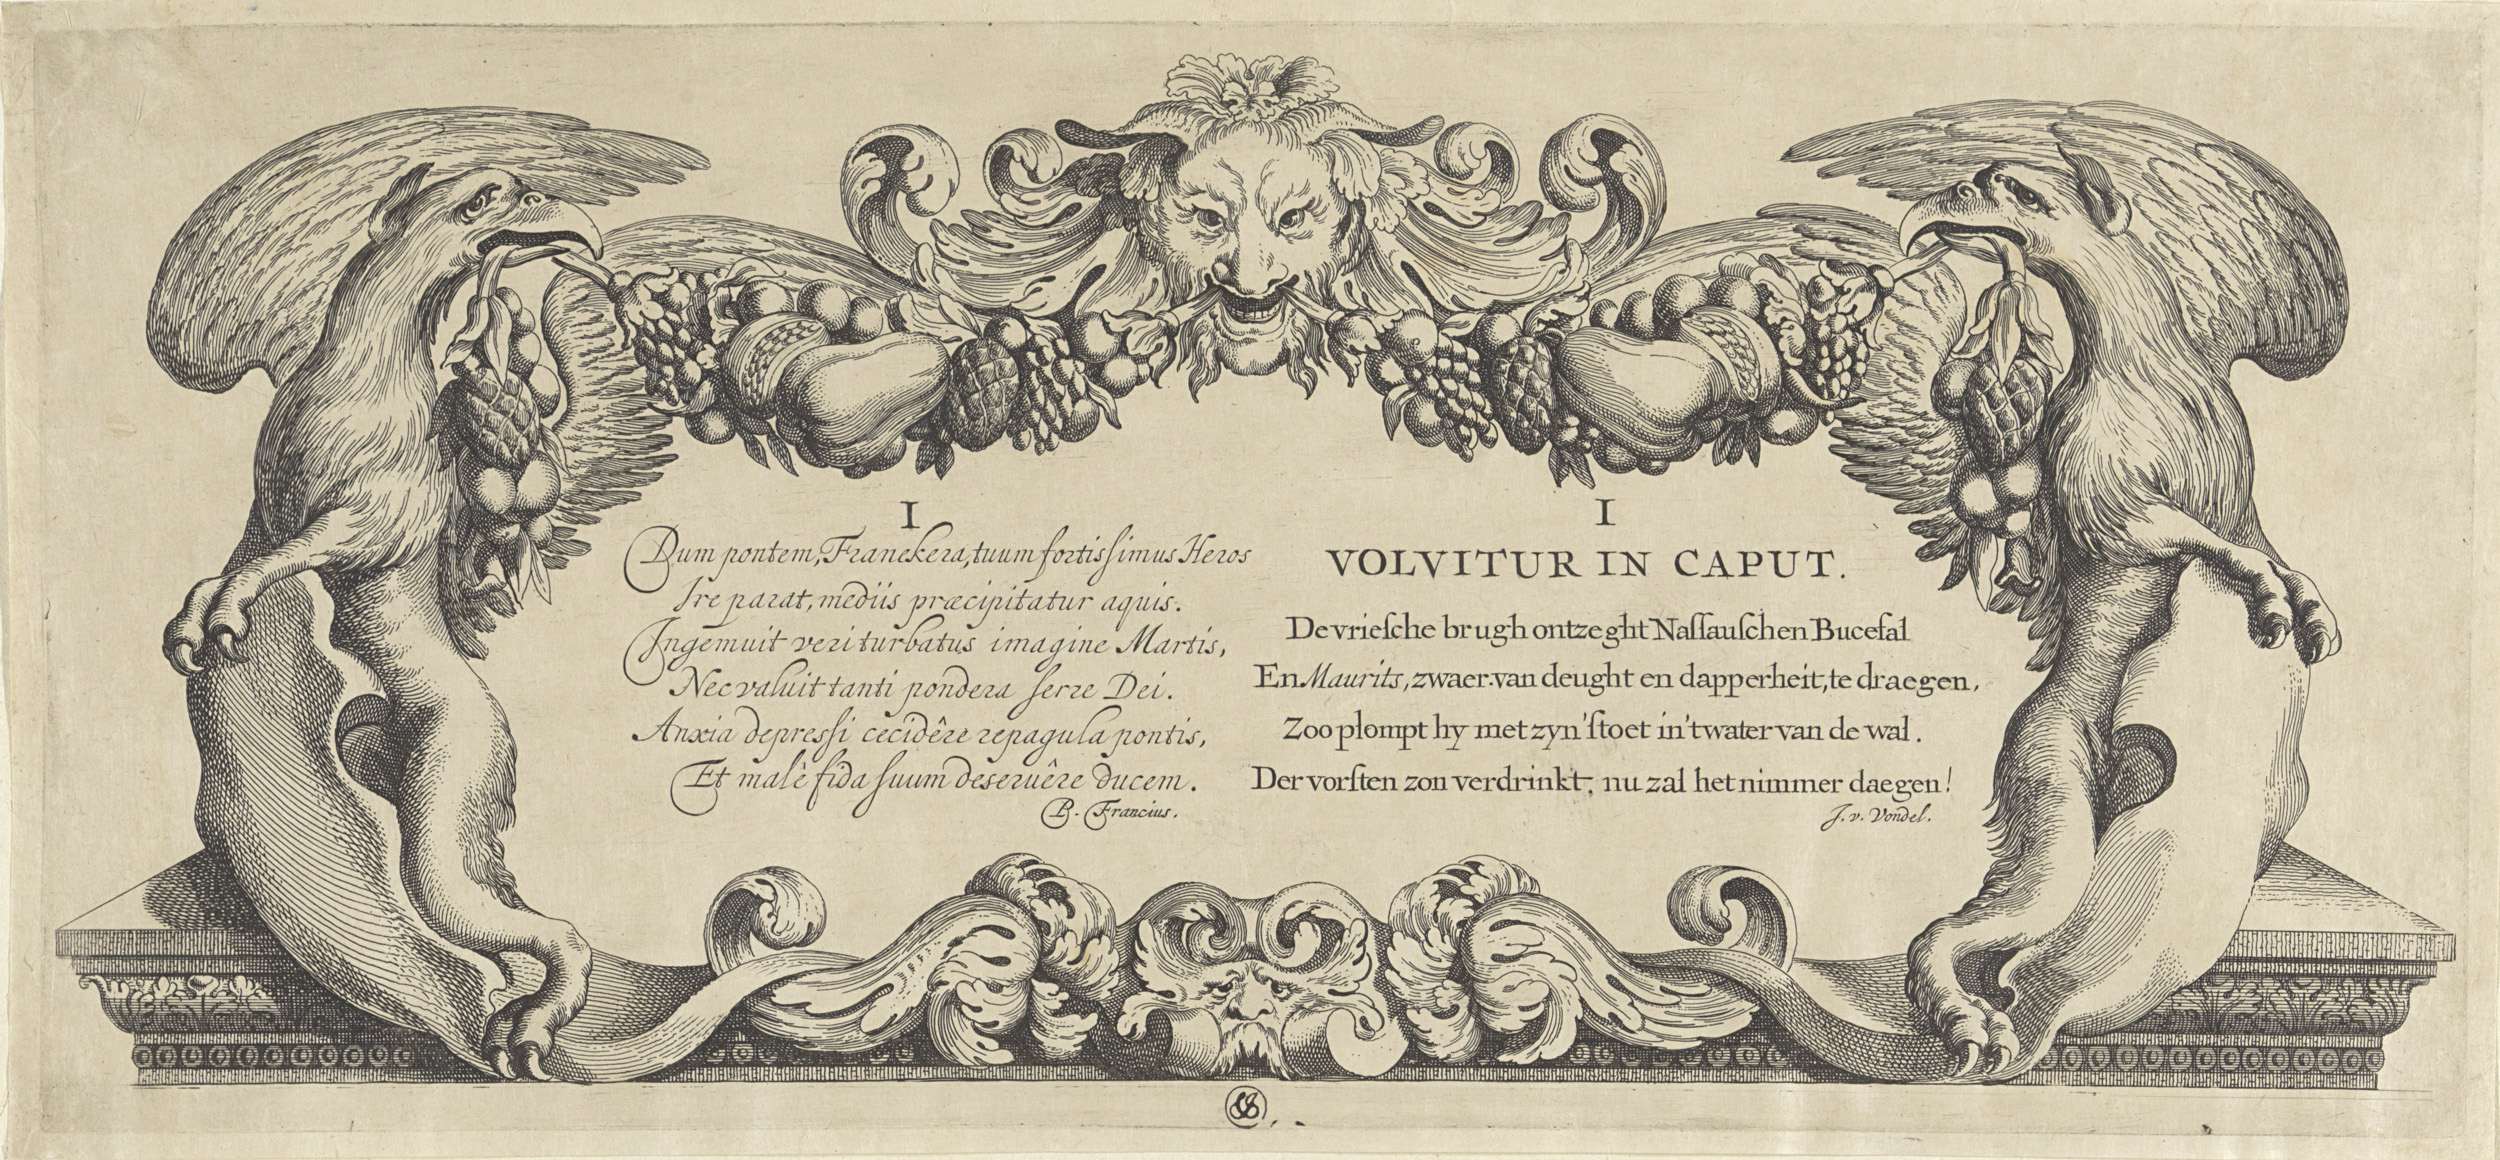 I
Dum pontem, Franekera, tuum fortissimus Heros
Ire parat, mediis præcipitatur aquis.
Ingemuit veri turbatus imagine Martis,
Nec valuit tanti pondera ferre Dei.
Anxia depressi cecidêre repagula pontis,
Et malè fida suum deseruêre ducem.
P. Francius.
I
VOLVITUR IN CAPUT.
De vriesche brugh ontzeght Nassauschen Bucefal
En Maurits, zwaer van deught en dapperheit, te draegen,
Zoo plompt hy met zyn' stoet in 't water van de wal.
Der vorsten zon verdrinkt, nu zal het nimmer daegen!
J. v. Vondel.